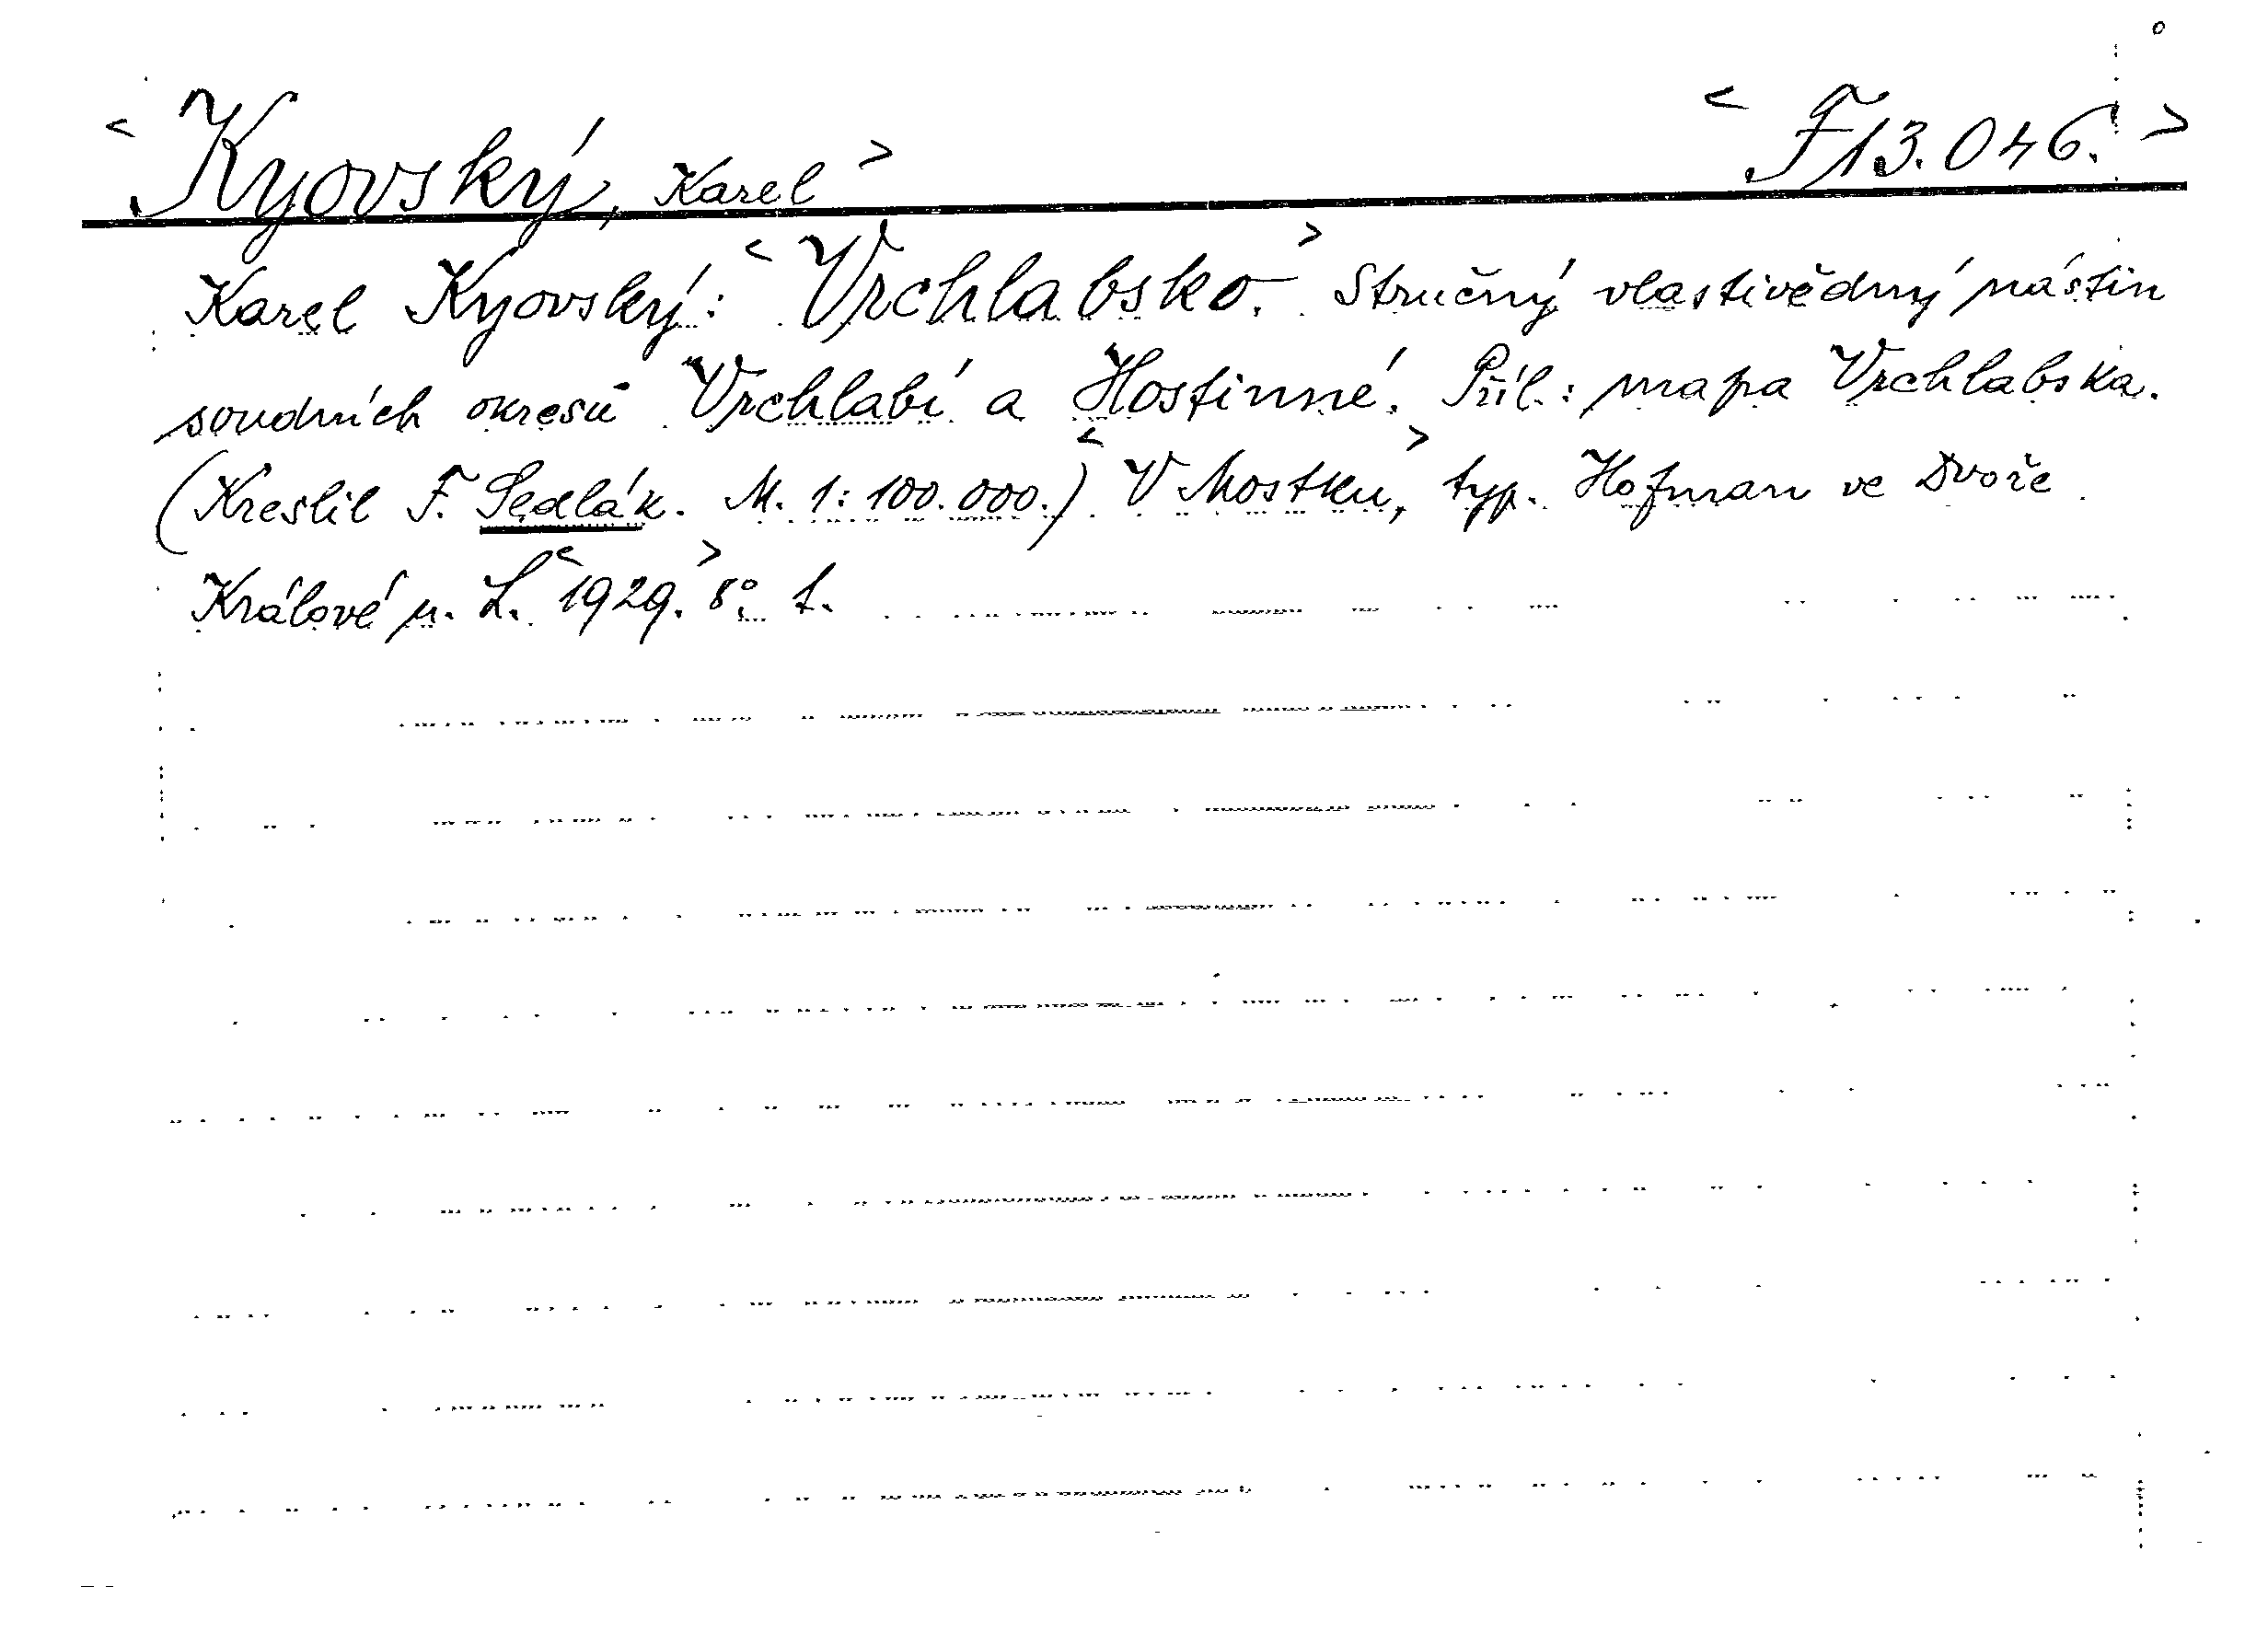 < Kyovský, Karel > < F 13.046. >
Karel Kyovský: < Vrchlabsko. > Stručný vlastivědný nástin
soudních okresů Vrchlabí a Hostinné. Příl.: mapa Vrchlabska.
(Kreslil F. Sedlák. M. 1:100.000.) < V Mostku, > typ. Hofman ve Dvoře
Králové n. L. < 1929. > 8°. 1.